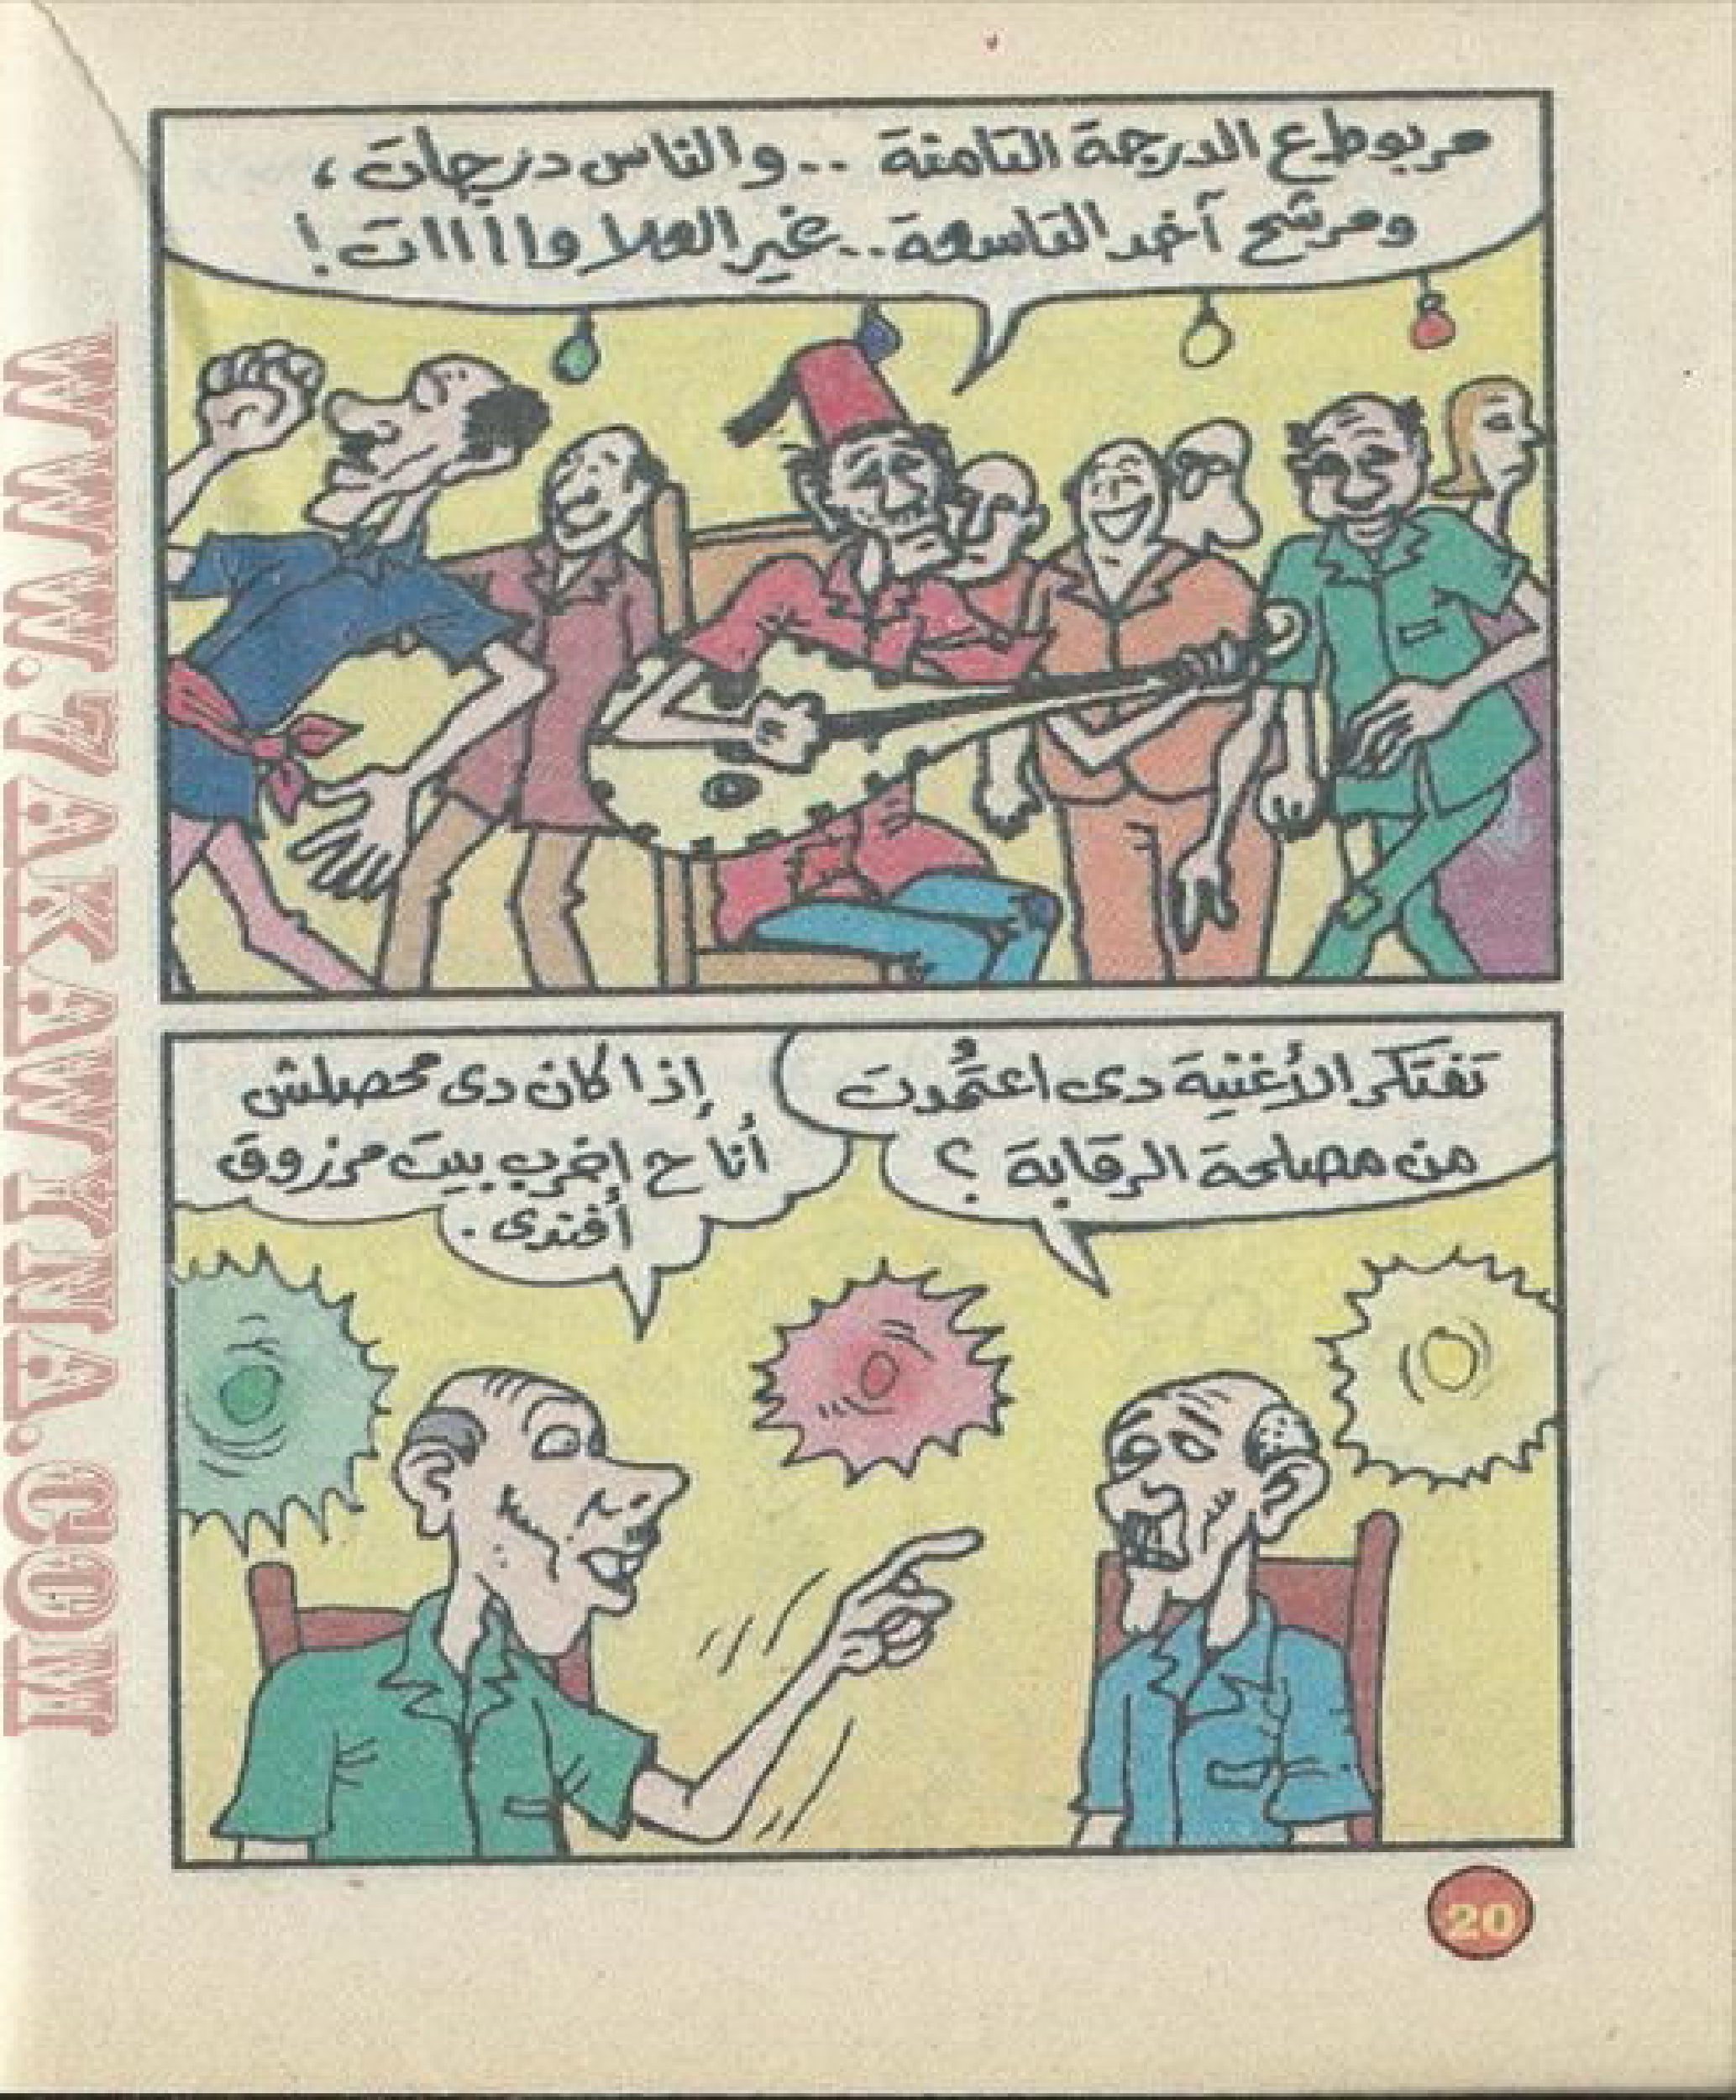 مربوط ع الدرجة التامنة .. والناس درجات،
ومرشح آخد التاسعة.. غير العلاواااات!
تفتكر الأغنية دى اعتُمدت
من مصلحة الرقابة؟
إذا كان دى محصلش
أنا ح اخرب بيت مرزوق
أفندى.
20
WWW.7AKAWITNA.COM